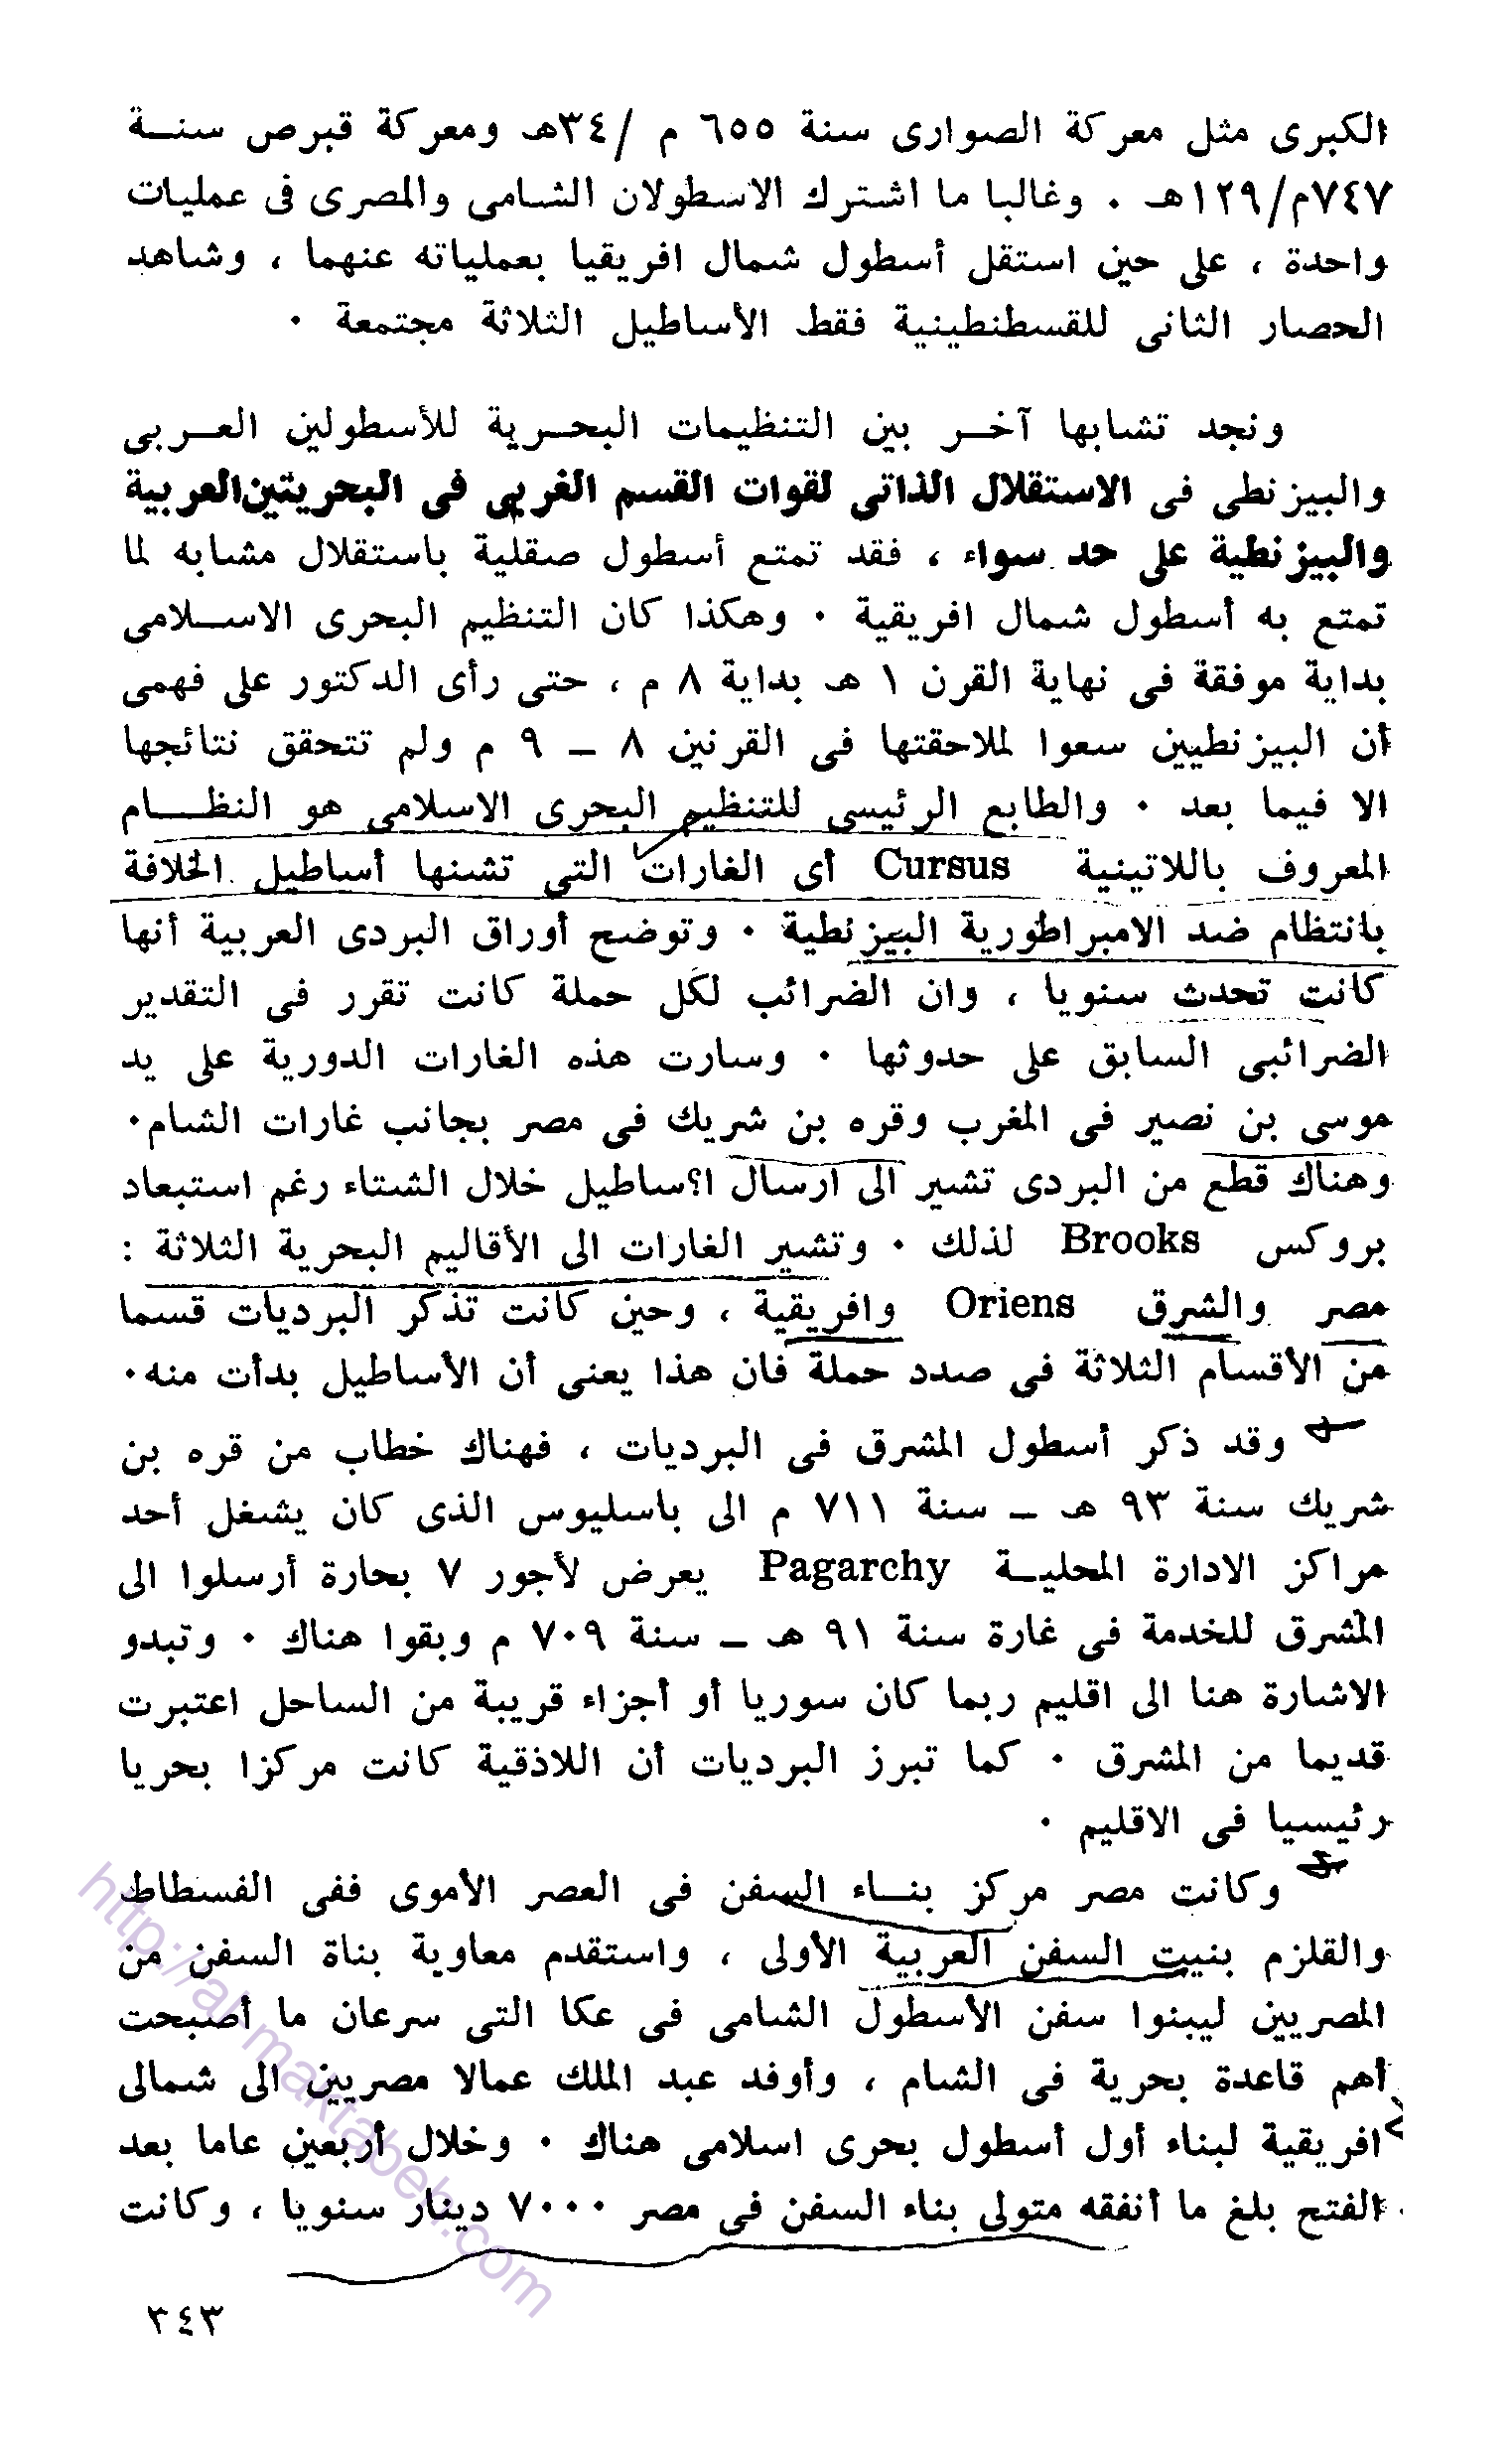 الكبرى مثل معركة الصوارى سنة ٦٥٥ م /٣٤هـ ومعركة قبرص سنة
٧٤٧م/١٢٩هـ . وغالبا ما اشترك الاسطولان الشامى والمصرى فى عمليات
واحدة ، على حين استقل أسطول شمال افريقيا بعملياته عنهما ، وشاهد
الحصار الثانى للقسطنطينية فقط الأساطيل الثلاثة مجتمعة .
ونجد تشابها آخر بين التنظيمات البحرية للأسطولين العربى
والبيزنطى فى الاستقلال الذاتى لقوات القسم الغربى فى البحريتين العربية
والبيزنطية على حد سواء ، فقد تمتع أسطول صقلية باستقلال مشابه لما
تمتع به أسطول شمال افريقية . وهكذا كان التنظيم البحرى الاسلامى
بداية موفقة فى نهاية القرن ١ هـ بداية ٨ م ، حتى رأى الدكتور على فهمى
أن البيزنطيين سعوا لملاحقتها فى القرنين ٨ – ٩ م ولم تتحقق نتائجها
الا فيما بعد . والطابع الرئيسى للتنظيم البحرى الاسلامى هو النظام
المعروف باللاتينية Cursus أى الغارات التى تشنها أساطيل الخلافة
بانتظام ضد الامبراطورية البيزنطية . وتوضح أوراق البردى العربية أنها
كانت تحدث سنويا ، وان الضرائب لكل حملة كانت تقرر فى التقدير
الضرائبى السابق على حدوثها . وسارت هذه الغارات الدورية على يد
موسى بن نصير فى المغرب وقره بن شريك فى مصر بجانب غارات الشام.
وهناك قطع من البردى تشير الى ارسال ا؟ساطيل خلال الشتاء رغم استبعاد
بروكس Brooks لذلك . وتشير الغارات الى الأقاليم البحرية الثلاثة :
مصر والشرق Oriens وافريقية ، وحين كانت تذكر البرديات قسما
من الأقسام الثلاثة فى صدد حملة فان هذا يعنى أن الأساطيل بدأت منه.
وقد ذكر أسطول المشرق فى البرديات ، فهناك خطاب من قره بن
شريك سنة ٩٣ هـ – سنة ٧١١ م الى باسليوس الذى كان يشغل أحد
مراكز الادارة المحلية Pagarchy يعرض لأجور ٧ بحارة أرسلوا الى
المشرق للخدمة فى غارة سنة ٩١ هـ – سنة ٧٠٩ م وبقوا هناك . وتبدو
الاشارة هنا الى اقليم ربما كان سوريا أو أجزاء قريبة من الساحل اعتبرت
قديما من المشرق . كما تبرز البرديات أن اللاذقية كانت مركزا بحريا
رئيسيا فى الاقليم .
وكانت مصر مركز بناء السفن فى العصر الأموى ففى الفسطاط
والقلزم بنيت السفن العربية الأولى ، واستقدم معاوية بناة السفن من
المصريين ليبنوا سفن الأسطول الشامى فى عكا التى سرعان ما أصبحت
أهم قاعدة بحرية فى الشام ، وأوفد عبد الملك عمالا مصريين الى شمالى
افريقية لبناء أول أسطول بحرى اسلامى هناك . وخلال أربعين عاما بعد
الفتح بلغ ما أنفقه متولى بناء السفن فى مصر ٧٠٠٠ دينار سنويا ، وكانت
٣٤٣
http://al-maktabeh.com